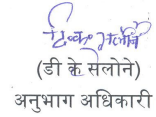 (डी के सेलोने)
अनुभाग अधिकारी